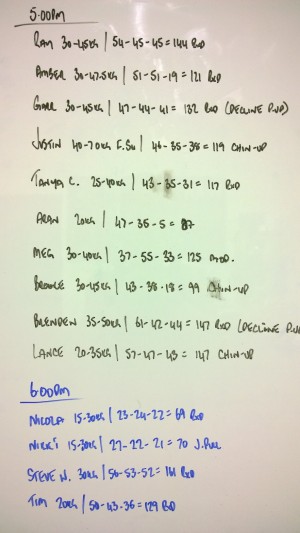 5:00PM
RAM 30-45KG | 54-45-45=144 RXD
AMBER 30-47.5KG | 51-51-19=121 RXD
30-45KG | 47-44-41=132 RXD (DECLINE P.UP)
JUSTIN 40-70KG F.SQ | 46-35-38=119 CHIN-UP
TANYA C. 25-40KG | 43-35-31=117 RXD
ARAN 20KG | 47-35-5=87
MEG 30-40KG | 37-55-33=125 MOD.
30-45KG | 43-38-18=99 CHIN-UP
BRENDEN 35-50KG | 61-42-44=147 RXD (DECLINE P.UP
LANCE 20-35KG | 57-47-43=147 CHIN-UP
6:00PM
NICOLA 15-30KG | 23-24-22=69 RXD
NIKKI 15-30KG | 27-22-21=70 J.PULL
STEVE N. 30KG | 56-53-52=161 RXD
TIM 20KG | 50-43-36=129 RXD